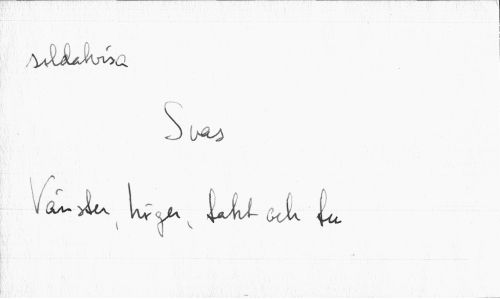 soldatvisa
Svas
Vänster, höger, takt och tu